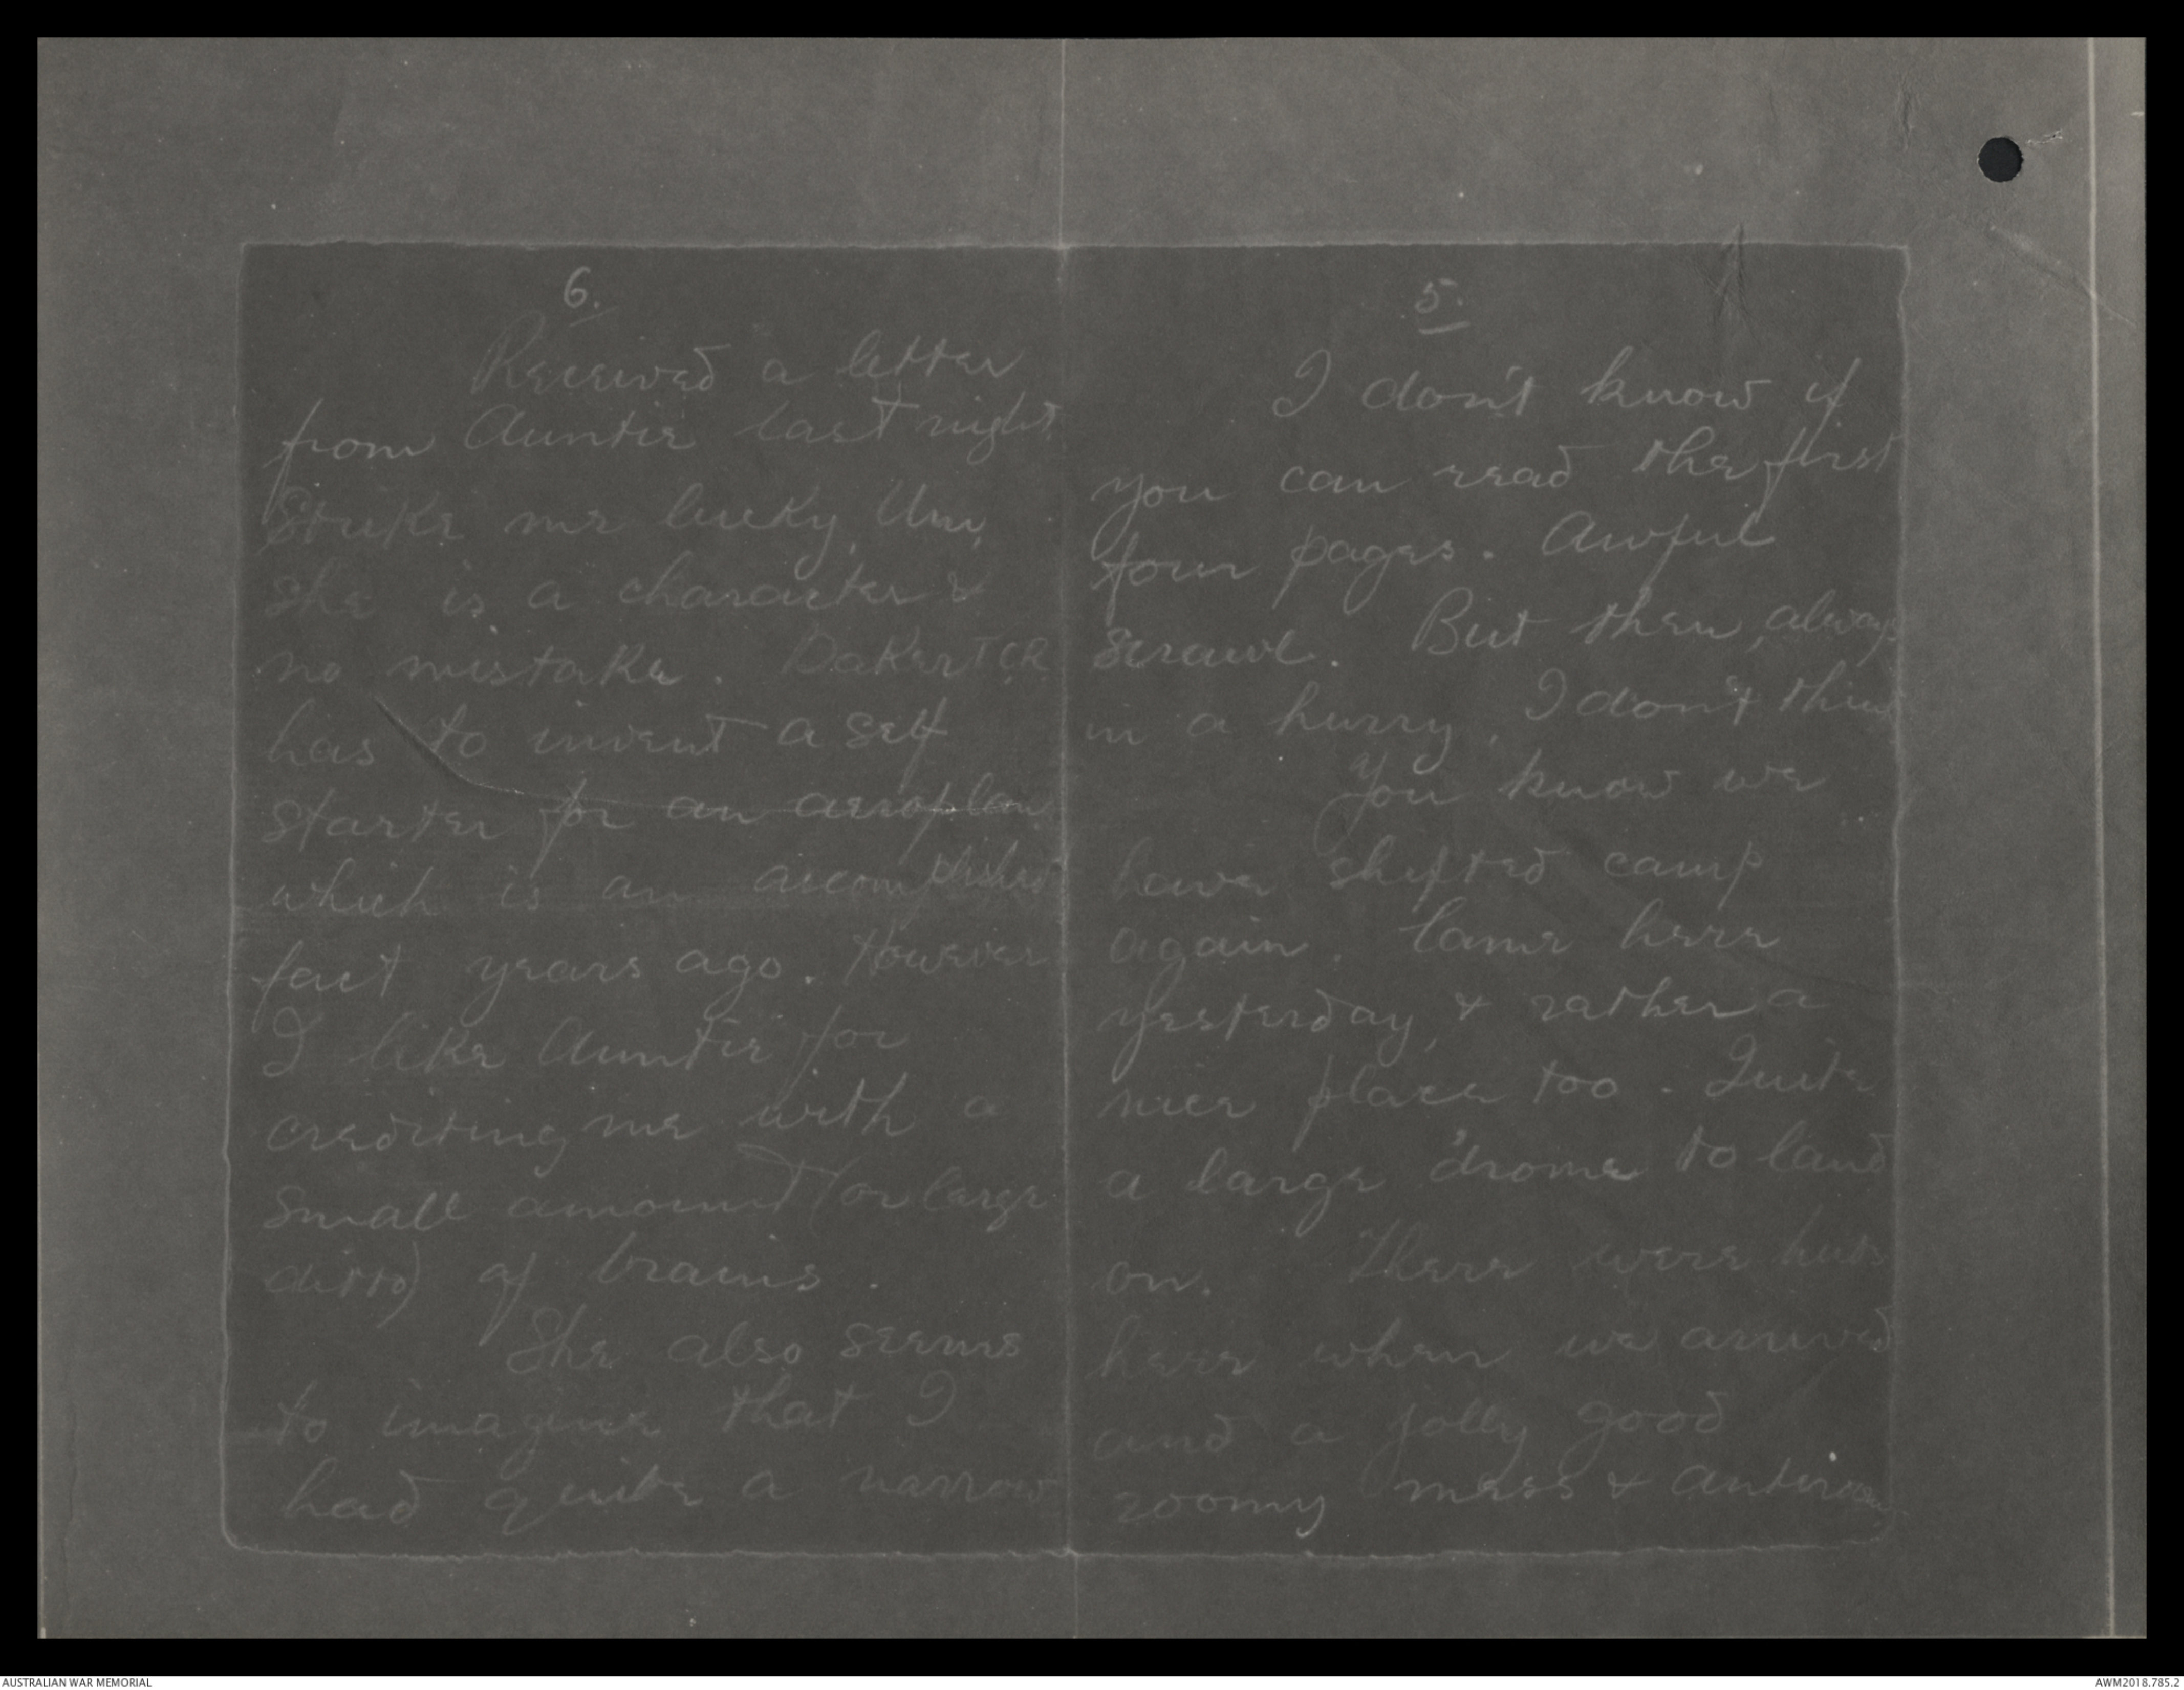 5.
I don't know if
you can read the first
four pages. Awful
scrawl. But then, always
in a hurry, I don't think
You know we
have shifted camp
again. Came here
yesterday, & rather a
nice place too. Quite
a large 'drome to land
on. There were huts
here when we arrived
and a jolly good
roomy mess & anteroom
6.
Received a letter
from Auntie last night.
Strike me lucky, Um,
she is a character &
no mistake.
has to invent a self
starter for an aeroplane
which is an accomplished
fact years ago. However
I like Auntie for
crediting me with a
small amount (or large
ditto) of brains.
She also seems
to imagine that I
had quite a narrow
AUSTRALIAN WAR MEMORIAL
AWM2018.785.2